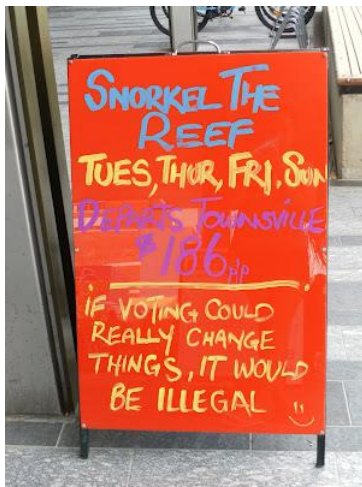 SNORKEL THE
REEF
TUES, THUR, FRI, SUN
DEPARTS TOWNSVILLE
$186 p/p
IF VOTING COULD
REALLY CHANGE
THINGS, IT WOULD
BE ILLEGAL